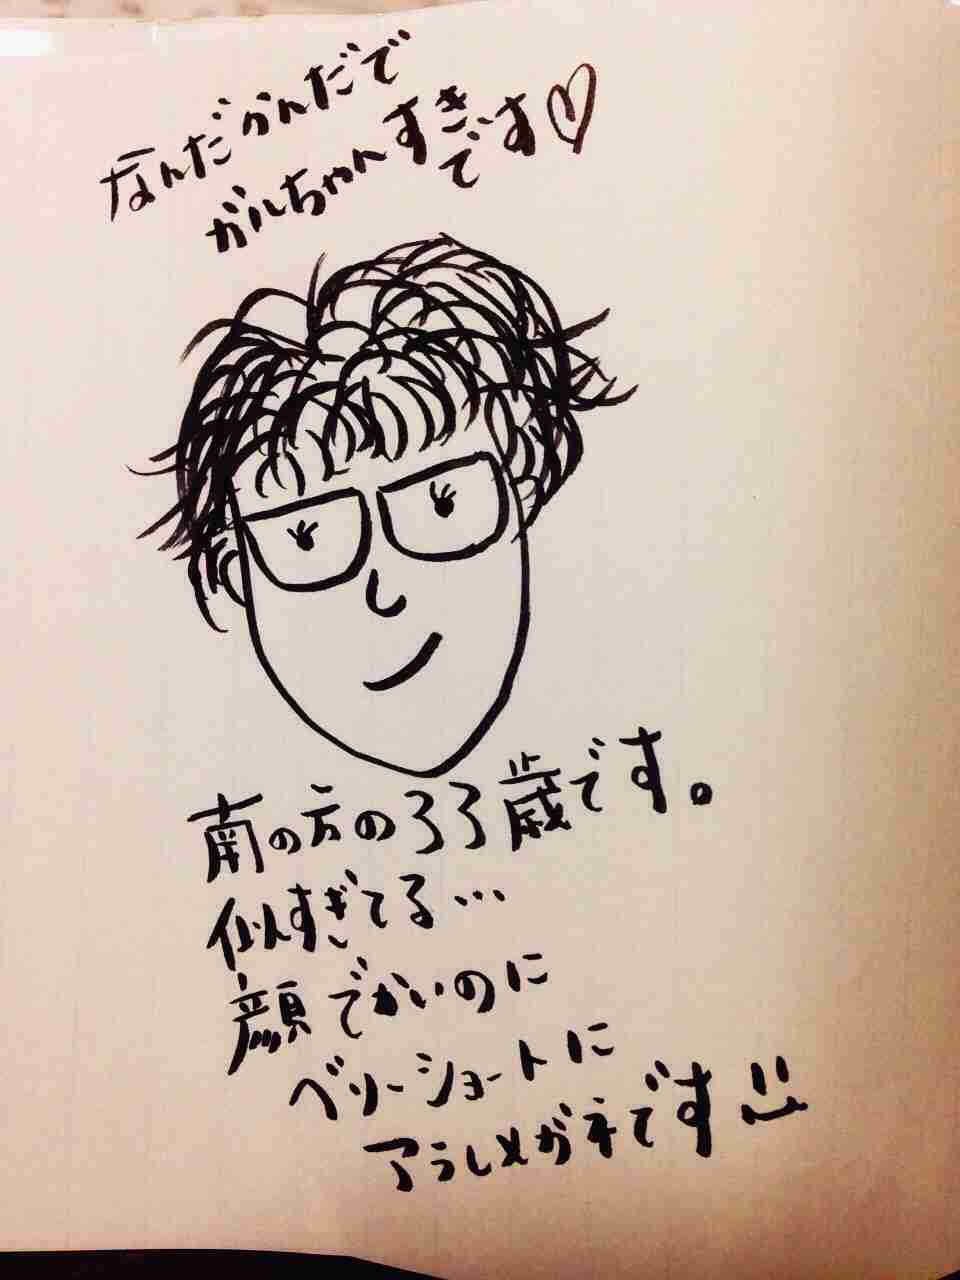 なんだかんだで
ガルちゃんすき
です♡
南の方の33歳です。
似すぎてる…
顔でかいのに
ベリーショートに
アラレメガネです